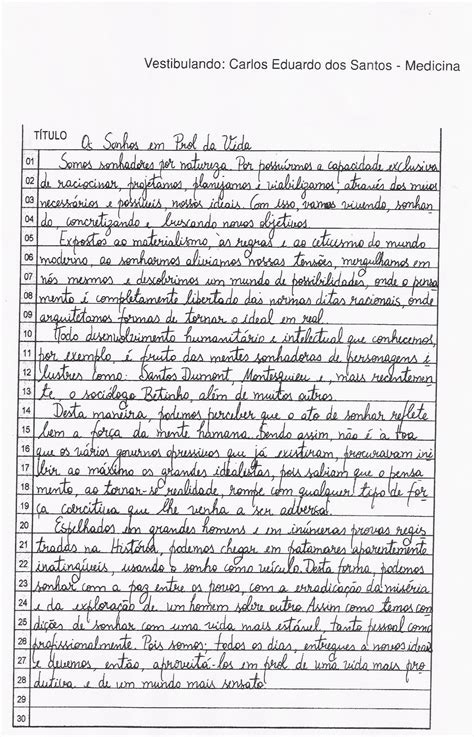 Vestibulando: Carlos Eduardo dos Santos - Medicina
TÍTULO Os Sonhos em Prol da Vida
01 Somos sonhadores por natureza. Por possuírmos a capacidade exclusiva
02 de raciocinar, projetamos, planejamos e viabilizamos, através dos meios
03 necessários e possíveis, nossos ideais. Com isso, vamos vivendo, sonhan-
04 do, concretizando e buscando novos objetivos.
05 Expostos ao materialismo, às regras e ao ceticismo do mundo
06 moderno, ao sonharmos aliviamos nossas tensões, mergulhamos em
07 nós mesmos e descobrimos um mundo de possibilidades, onde o pensa-
08 mento é completamente libertado das normas ditas racionais, onde
09 arquitetamos formas de tornar o ideal em real.
10 Todo desenvolvimento humanitário e intelectual que conhecemos,
11 por exemplo, é fruto das mentes sonhadoras de personagens i-
12 lustres como: Santos Dumont, Montesquieu e, mais recentemen-
13 te, o sociólogo Betinho, além de muitos outros.
14 Desta maneira, podemos perceber que o ato de sonhar reflete
15 bem a força da mente humana. Sendo assim, não é à toa
16 que os vários governos opressivos que já existiram, procuraram ini-
17 bir ao máximo os grandes idealistas, pois sabiam que o pensa-
18 mento, ao tornar-se realidade, rompe com qualquer tipo de for-
19 ça coercitiva que lhe venha a ser adversa.
20 Espelhados em grandes homens e em inúmeras provas regis-
21 tradas na História, podemos chegar em patamares aparentemente
22 inatingíveis, usando o sonho como veículo. Desta forma, podemos
23 sonhar com a paz entre os povos, com a erradicação da miséria
24 e da exploração de um homem sobre outro. Assim como temos con-
25 dições de sonhar com uma vida mais estável, tanto pessoal como
26 profissionalmente. Pois somos, todos os dias, entregues a novos ideais
27 e devemos, então, aproveitá-los em prol de uma vida mais pro-
28 dutiva e de um mundo mais sensato.
29
30